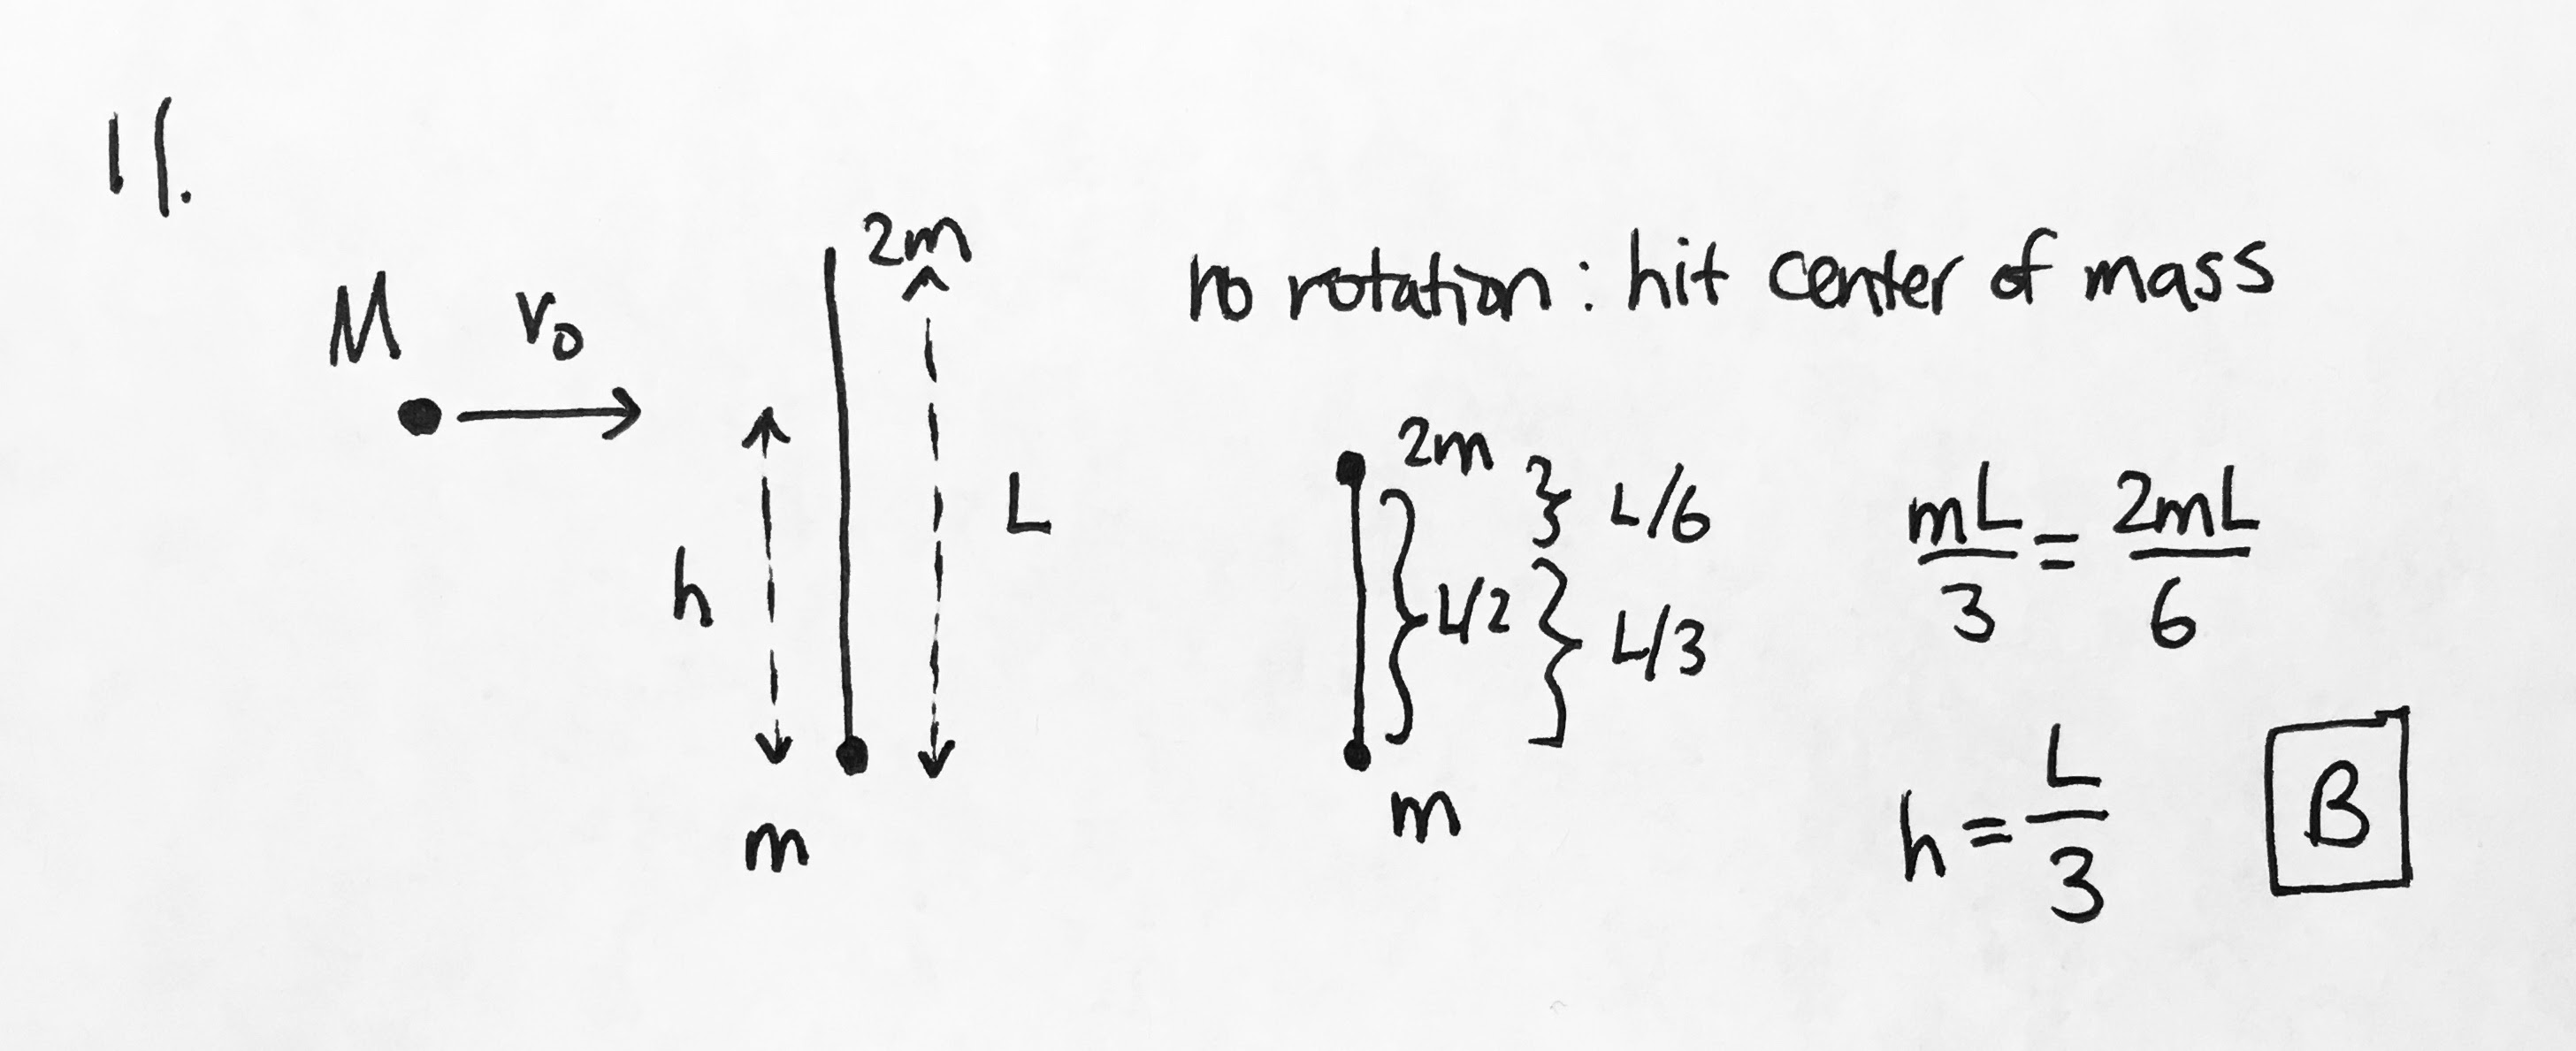 11.
M
v₀
h
m
2m
L
no rotation: hit center of mass
2m
L/6
L/2
L/3
m
mL/3 = 2mL/6
h = L/3
B